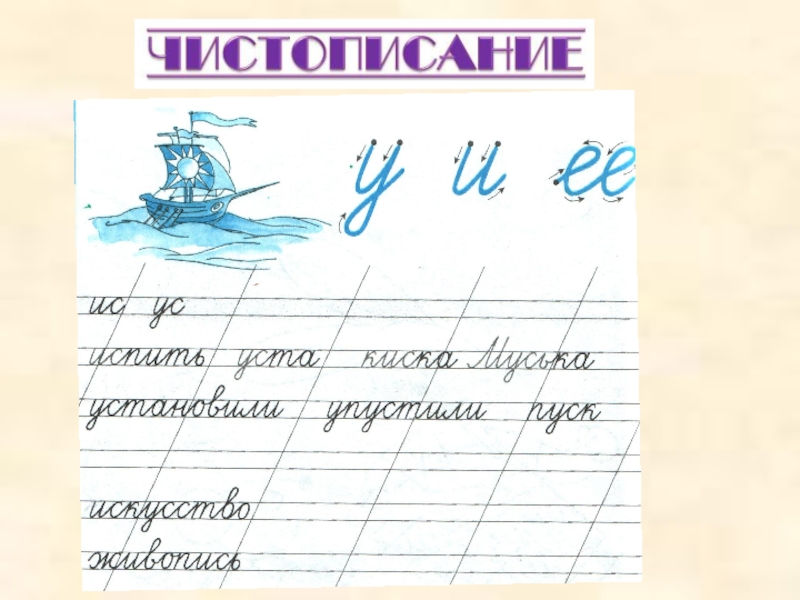 ЧИСТОПИСАНИЕ
у и ее
ис ус
испить уста киска Муська
установили упустили пуск
искусство
живопись